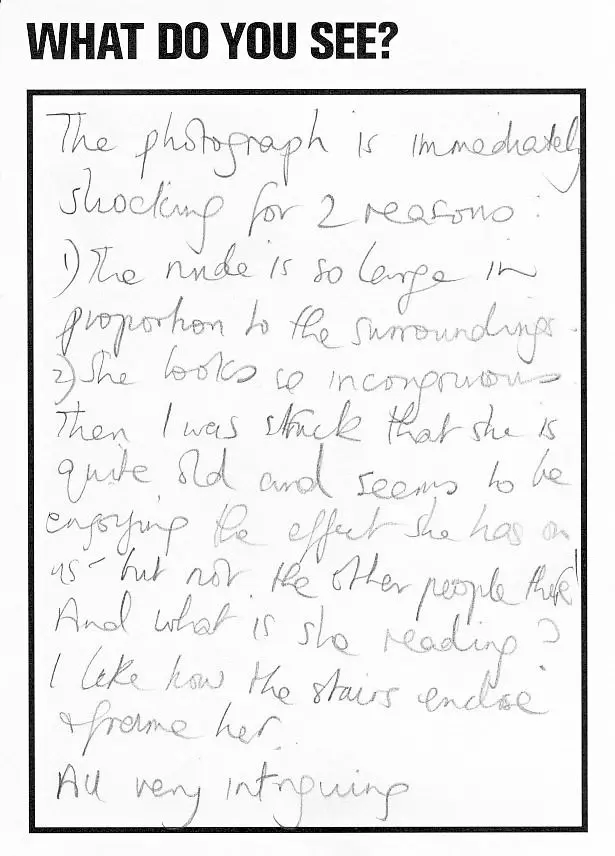 WHAT DO YOU SEE?
The photograph is immediately
shocking for 2 reasons :
1) The nude is so large in
proportion to the surroundings.
2) She looks so incongruous
Then I was struck that she is
quite old and seems to be
enjoying the effect she has on
us – but not the other people there!
And what is she reading?
I like how the stairs enclose
& frame her.
All very intriguing